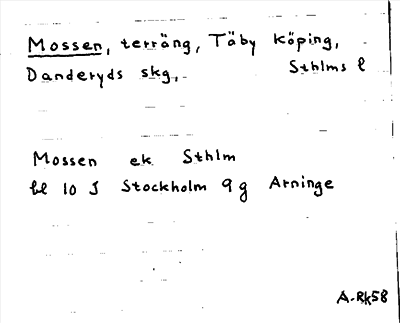 Mossen, terräng, Täby köping,
Danderyds skg, Sthlms l
Mossen ek Sthlm
bl 10 I Stockholm 9 g Arninge
A-Rk58